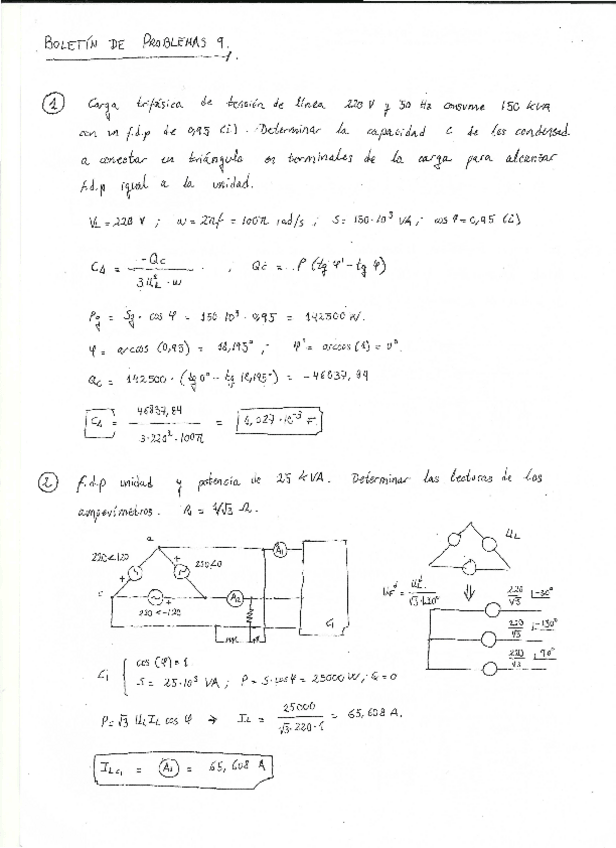 BOLETÍN DE PROBLEMAS 9.
① Carga trifásica de tensión de línea 220 V y 50 Hz consume 150 kVA
con un f.d.p de 0,95 (i). Determinar la capacidad C de los condensad.
a conectar en triángulo en terminales de la carga para alcanzar
f.d.p igual a la unidad.
VL = 220 V ; w = 2πf = 100π rad/s ; S = 150·10³ VA ; cos φ = 0,95 (i)
CΔ = -Qc / 3 UL² · w ; Qc = P (tg φ' - tg φ)
Pg = Sg · cos φ = 150·10³ · 0,95 = 142500 W.
φ = arccos (0,95) = 18,195° ; φ' = arccos (1) = 0°.
Qc = 142500 · (tg 0° - tg 18,195°) = -46837,84
CΔ = 46837,84 / 3·220²·100π = 1,027·10⁻³ F.
② f.d.p unidad y potencia de 25 kVA. Determinar las lecturas de los
amperímetros. R = 1/√3 Ω.
a
220<120
220<0
A1
UL
c
220<-120
A2
C1
UF = UL / √3∠30°
220/√3 ∠-30°
220/√3 ∠-150°
220/√3 ∠90°
C1 { cos (φ) = 1
S = 25·10³ VA ; P = S·cos φ = 25000 W ; Q = 0
P = √3 UL IL cos φ → IL = 25000 / √3·220·1 = 65,608 A.
ILC1 = A1 = 65,608 A